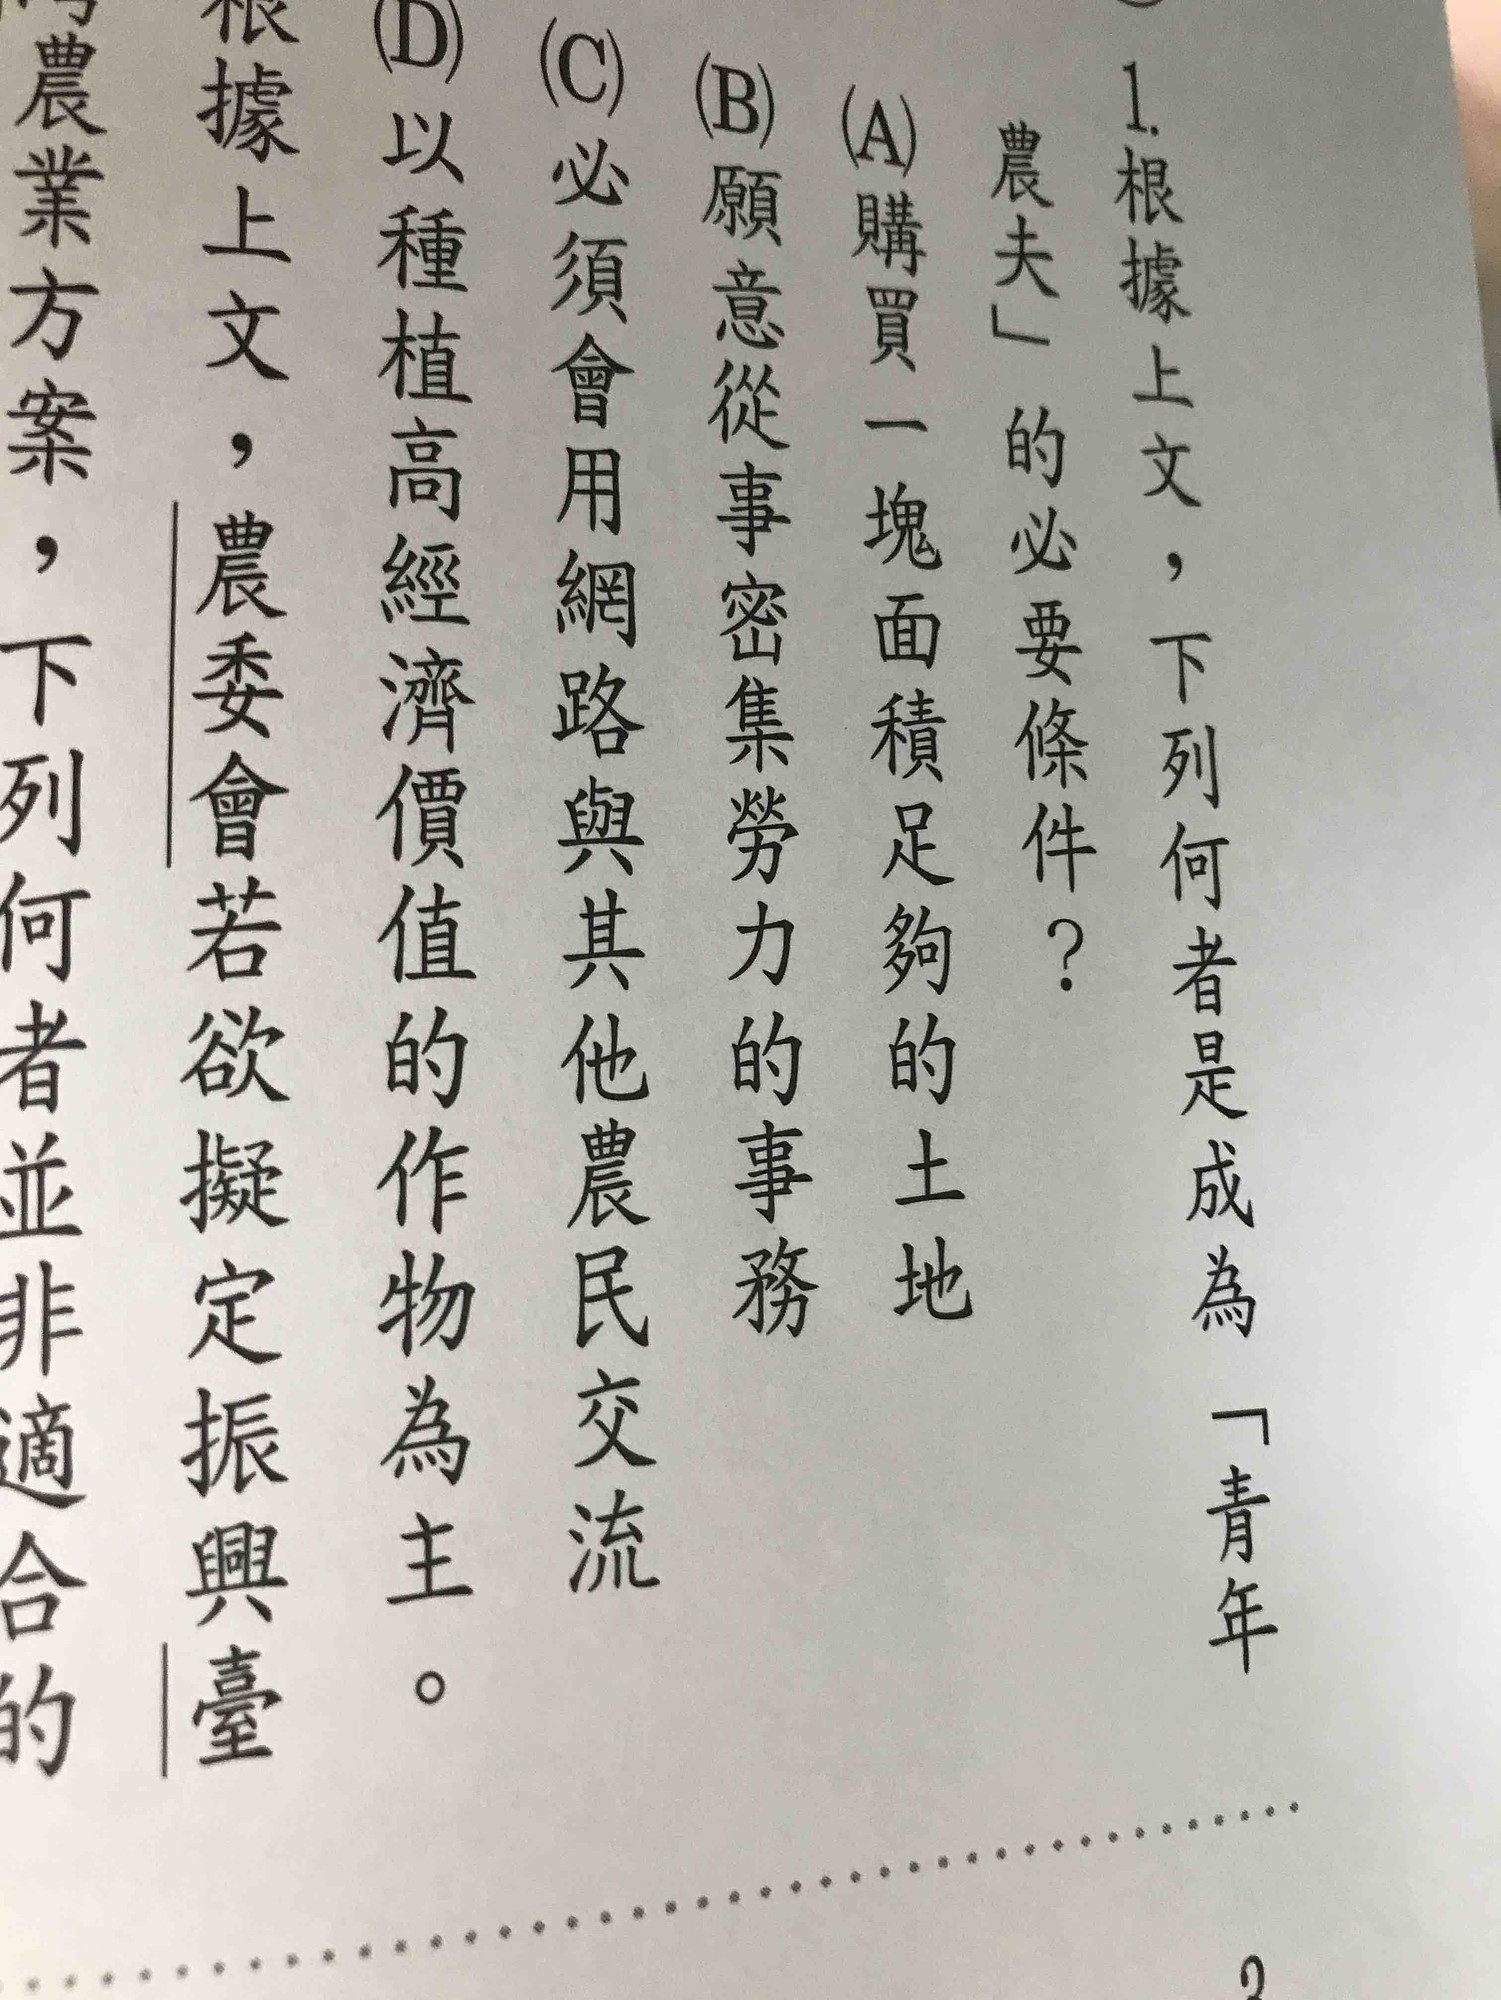 1.根據上文，下列何者是成為「青年
農夫」的必要條件？
(A)購買一塊面積足夠的土地
(B)願意從事密集勞力的事務
(C)必須會用網路與其他農民交流
(D)以種植高經濟價值的作物為主。
根據上文，農委會若欲擬定振興臺
灣農業方案，下列何者並非適合的